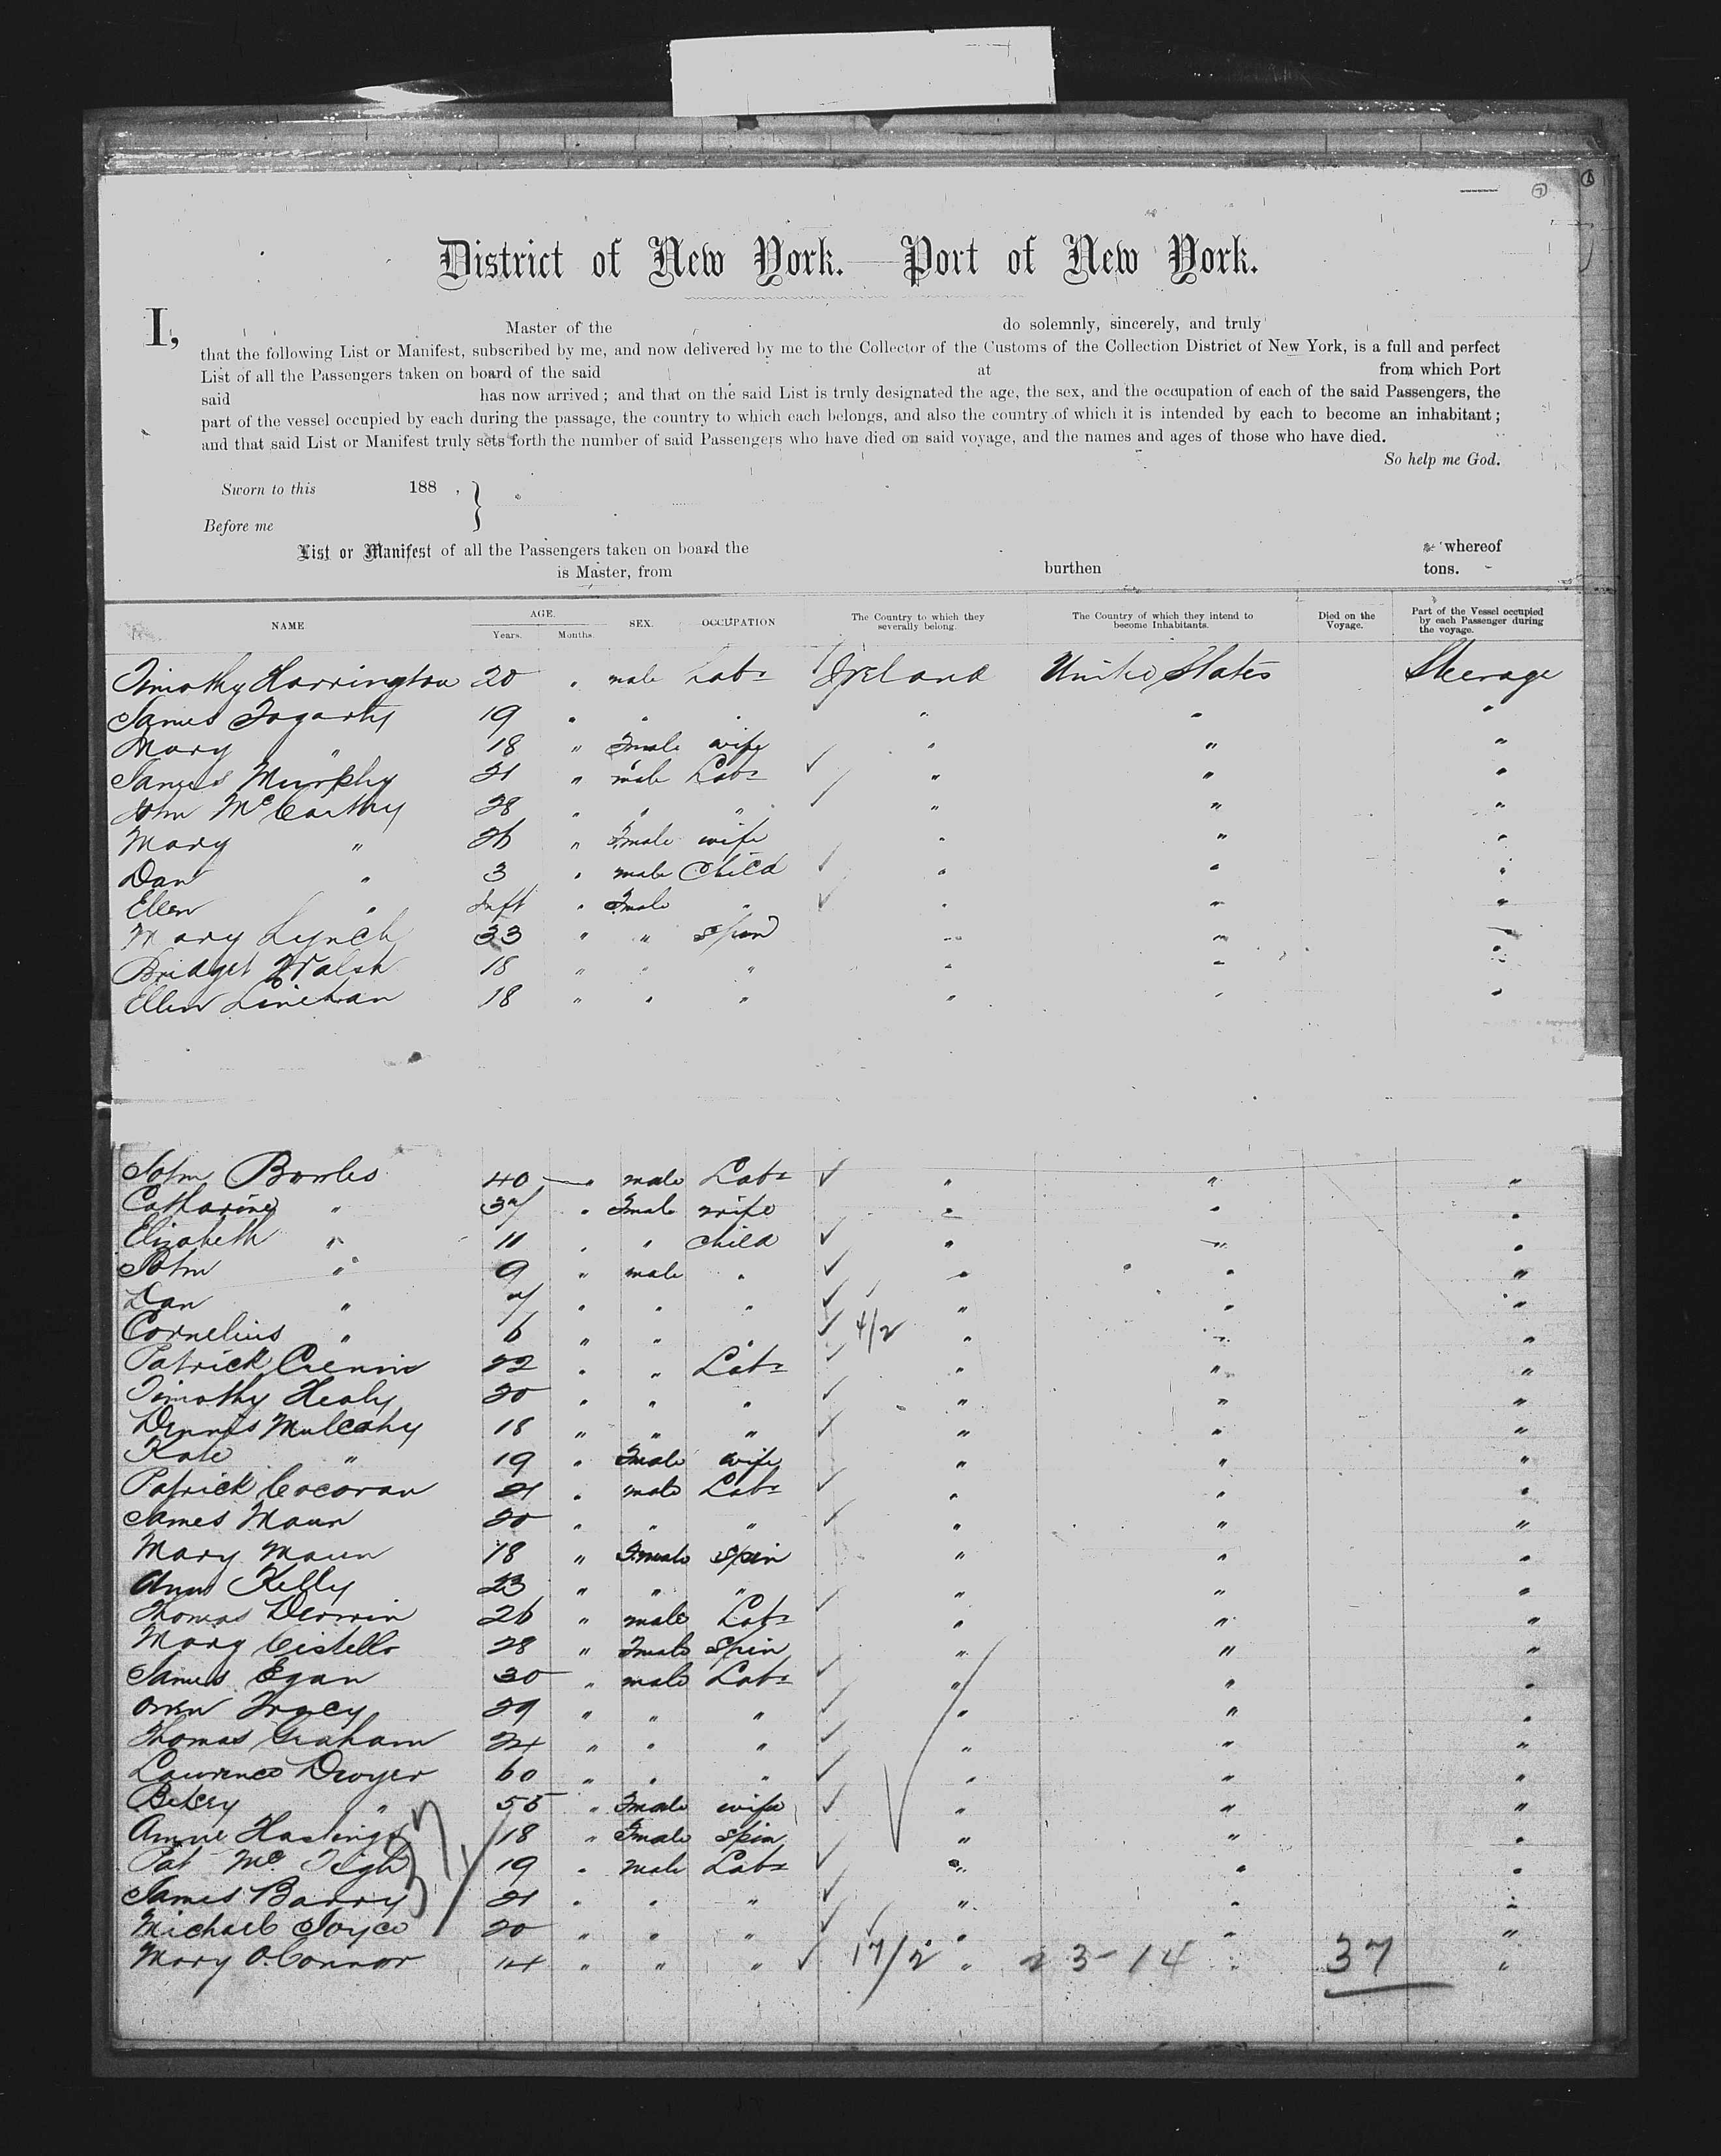 District of New York. Port of New York.
I, Master of the do solemnly, sincerely, and truly
that the following List or Manifest, subscribed by me, and now delivered by me to the Collector of the Customs of the Collection District of New York, is a full and perfect
List of all the Passengers taken on board of the said at from which Port
said has now arrived; and that on the said List is truly designated the age, the sex, and the occupation of each of the said Passengers, the
part of the vessel occupied by each during the passage, the country to which each belongs, and also the country of which it is intended by each to become an inhabitant;
and that said List or Manifest truly sets forth the number of said Passengers who have died on said voyage, and the names and ages of those who have died.
So help me God.
Sworn to this 188 ,
Before me
List or Manifest of all the Passengers taken on board the whereof
is Master, from burthen tons.
NAME AGE. Years. Months. SEX. OCCUPATION The Country to which they severally belong. The Country of which they intend to become Inhabitants. Died on the Voyage. Part of the Vessel occupied by each Passenger during the voyage.
Timothy Harrington 20 " male Labr Ireland United States Steerage
James Fogarty 19 " " " " " "
Mary " 18 " Fmale wife " " "
James Murphy 21 " male Labr " " "
John McCarthy 28 " " " " " "
Mary " 26 " Fmale wife " " "
Dan " 3 " male Child " " "
Ellen " Inft " Fmale " " " "
Mary Lynch 33 " " Spin " " "
Bridget Walsh 18 " " " " " "
Ellen Linehan 18 " " " " " "
John Bowles 40 " male Labr " " "
Catharine " 37 " Fmale wife " " "
Elizabeth " 11 " " child " " "
John " 9 " male " " " "
Dan " 7 " " " " " "
Cornelius " 6 " " " 4/2 " " "
Patrick 22 " " Labr " " "
Timothy Healy 20 " " " " " "
Dennis Mulcahy 18 " " " " " "
Kate " 19 " Fmale wife " " "
Patrick Cocoran 21 " male Labr " " "
James Maun 20 " " " " " "
Mary Maun 18 " Fmale Spin " " "
Ann Kelly 23 " " " " " "
Thomas 26 " male Labr " " "
Mary Cistello 28 " Fmale Spin " " "
James Egan 30 " male Labr " " "
Owen Tracy 29 " " " " " "
Thomas Graham 24 " " " " " "
Lawrence Dwyer 60 " " " " " "
Betsey " 55 " Fmale wife " " "
Annie Hastings 18 " Fmale Spin " " "
Pat McTigh 19 " male Labr " " "
James Barry 21 " " " " " "
Michael Joyce 20 " " " " " "
Mary O'Connor 14 " " " 17/2 " 23-14 " 37 "